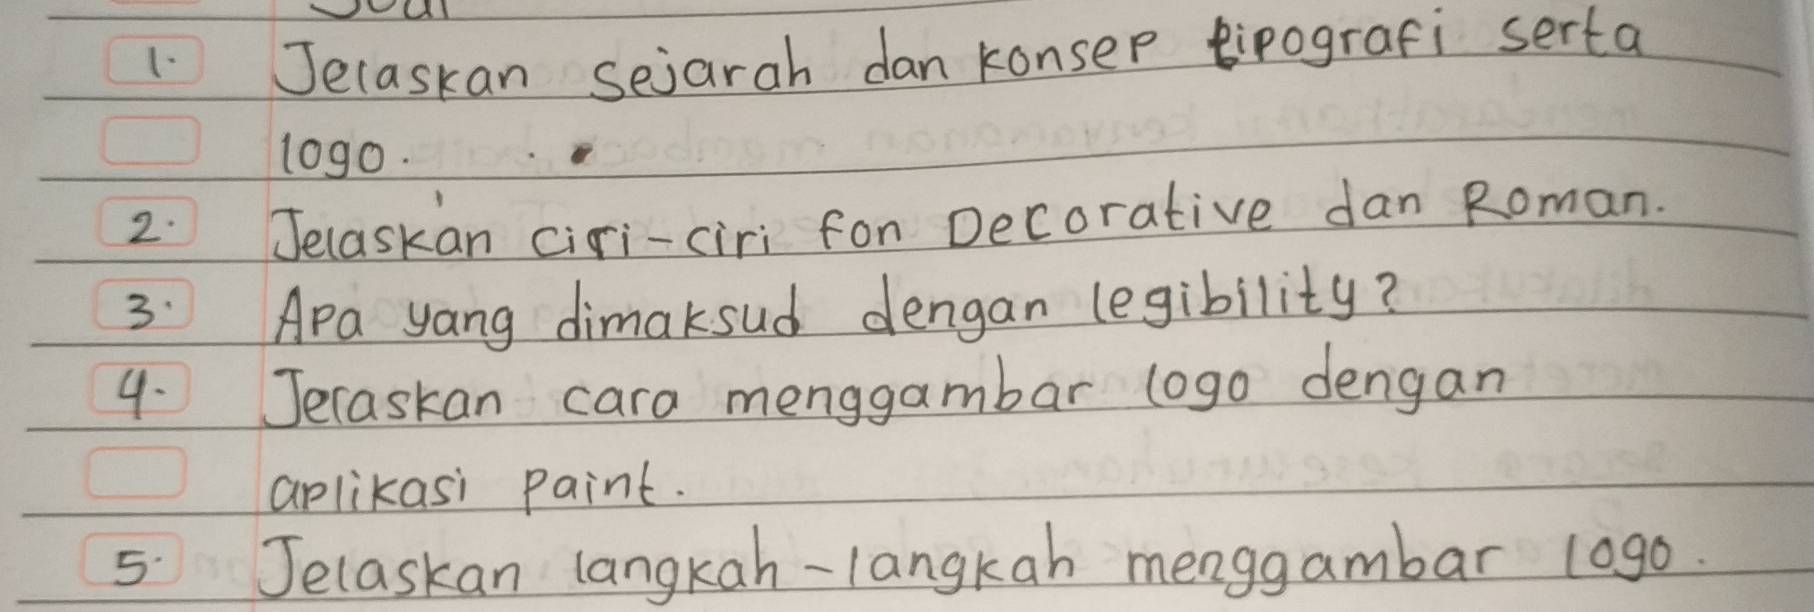 Soal
1. Jelaskan sejarah dan konsep tipografi serta
logo.
2. Jelaskan ciri-ciri fon Decorative dan Roman.
3. Apa yang dimaksud dengan legibility?
4. Jelaskan cara menggambar logo dengan
aplikasi paint.
5. Jelaskan langkah-langkah menggambar logo.